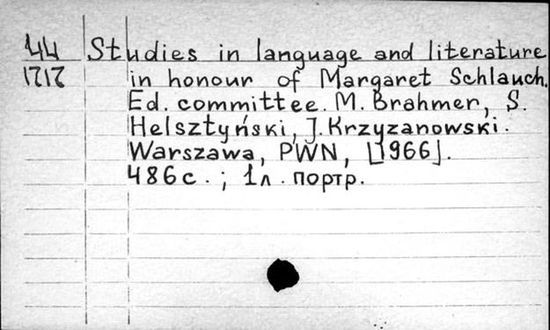 44 Studies in language and literature
1717 in honour of Margaret Schlauch.
Ed. committee. M. Brahmer, S.
Helsztyński, J. Krzyzanowski.
Warszawa, PWN, [1966].
486с. ; 1л. портр.